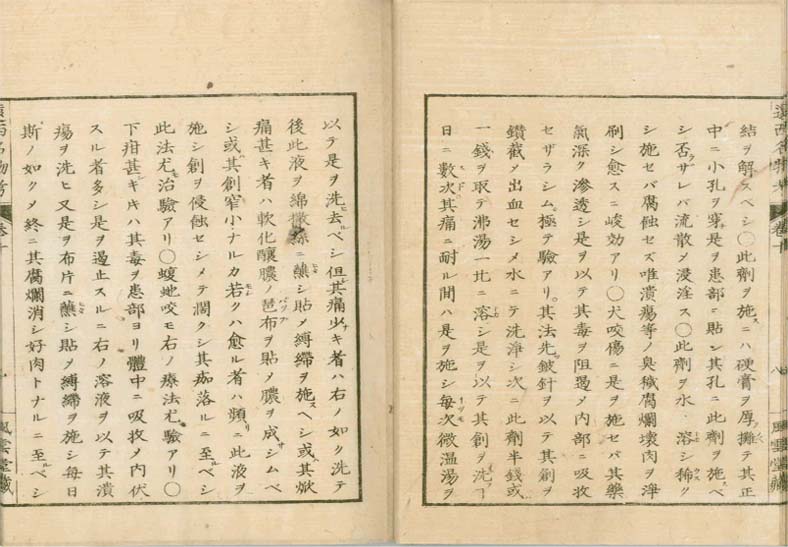 結ヲ解スベシ〇此劑ヲ施スニハ硬膏ヲ厚ク攤テ其正
中ニ小孔ヲ穿是ヲ患部ニ貼シ其孔ニ此劑ヲ施スベ
シ否ザレバ流散メ浸淫ス〇此劑ヲ水ニ溶シ稀ク
シ施セバ腐蝕セズ唯潰瘍等ノ臭穢腐爛壞肉ヲ淨
刷シ愈スニ峻効アリ〇犬咬傷ニ是ヲ施セバ其藥
氣深ク滲透シ是ヲ以テ其毒ヲ阻遏メ内部ニ吸收
セザラシム極テ驗アリ其法先鈹針ヲ以テ其創ヲ
鑽截メ出血セシメ水ニテ洗淨シ次ニ此劑半錢或
一錢ヲ取テ沸湯一匕ニ溶シ是ヲ以テ其創ヲ洗フヿ
日ニ數次其痛ニ耐ル間ハ是ヲ施シ每次微温湯ヲ
八
風雲堂藏
遠西名物考
卷十
以テ是ヲ洗去ベシ但其痛少キ者ハ右ノ如ク洗テ
後此液ヲ綿撒絲ニ蘸シ貼メ縛綳ヲ施スヘシ或其焮
痛甚キ者ハ軟化釀膿ノ琶布ヲ貼メ膿ヲ成シムベ
シ或其創窄小ナルカ若クハ愈ル者ハ頻リニ此液ヲ
施シ創ヲ侵蝕セシメテ濶クシ其痂落ルニ至ルベシ
此法尤モ治驗アリ〇蝮虵咬モ右ノ療法尤驗アリ〇
下疳甚シキハ其毒ヲ患部ヨリ體中ニ吸收メ内伏
スル者多シ是ヲ遏止スルニ右ノ溶液ヲ以テ其潰
瘍ヲ洗ヒ又是ヲ布片ニ蘸シ貼メ縛綳ヲ施シ每日
斯ノ如クメ終ニ其腐爛消シ好肉トナルニ至ルベシ
風雲堂藏